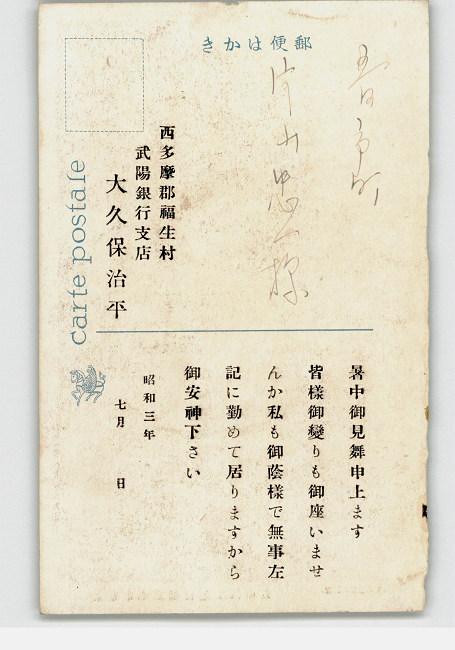 きかは便郵
Carte postale
西多摩郡福生村
武陽銀行支店
大久保治平
暑中御見舞申上ます
皆樣御變りも御座いませ
んか私も御蔭樣で無事左
記に勤めて居りますから
御安神下さい
昭和三年
七月　日